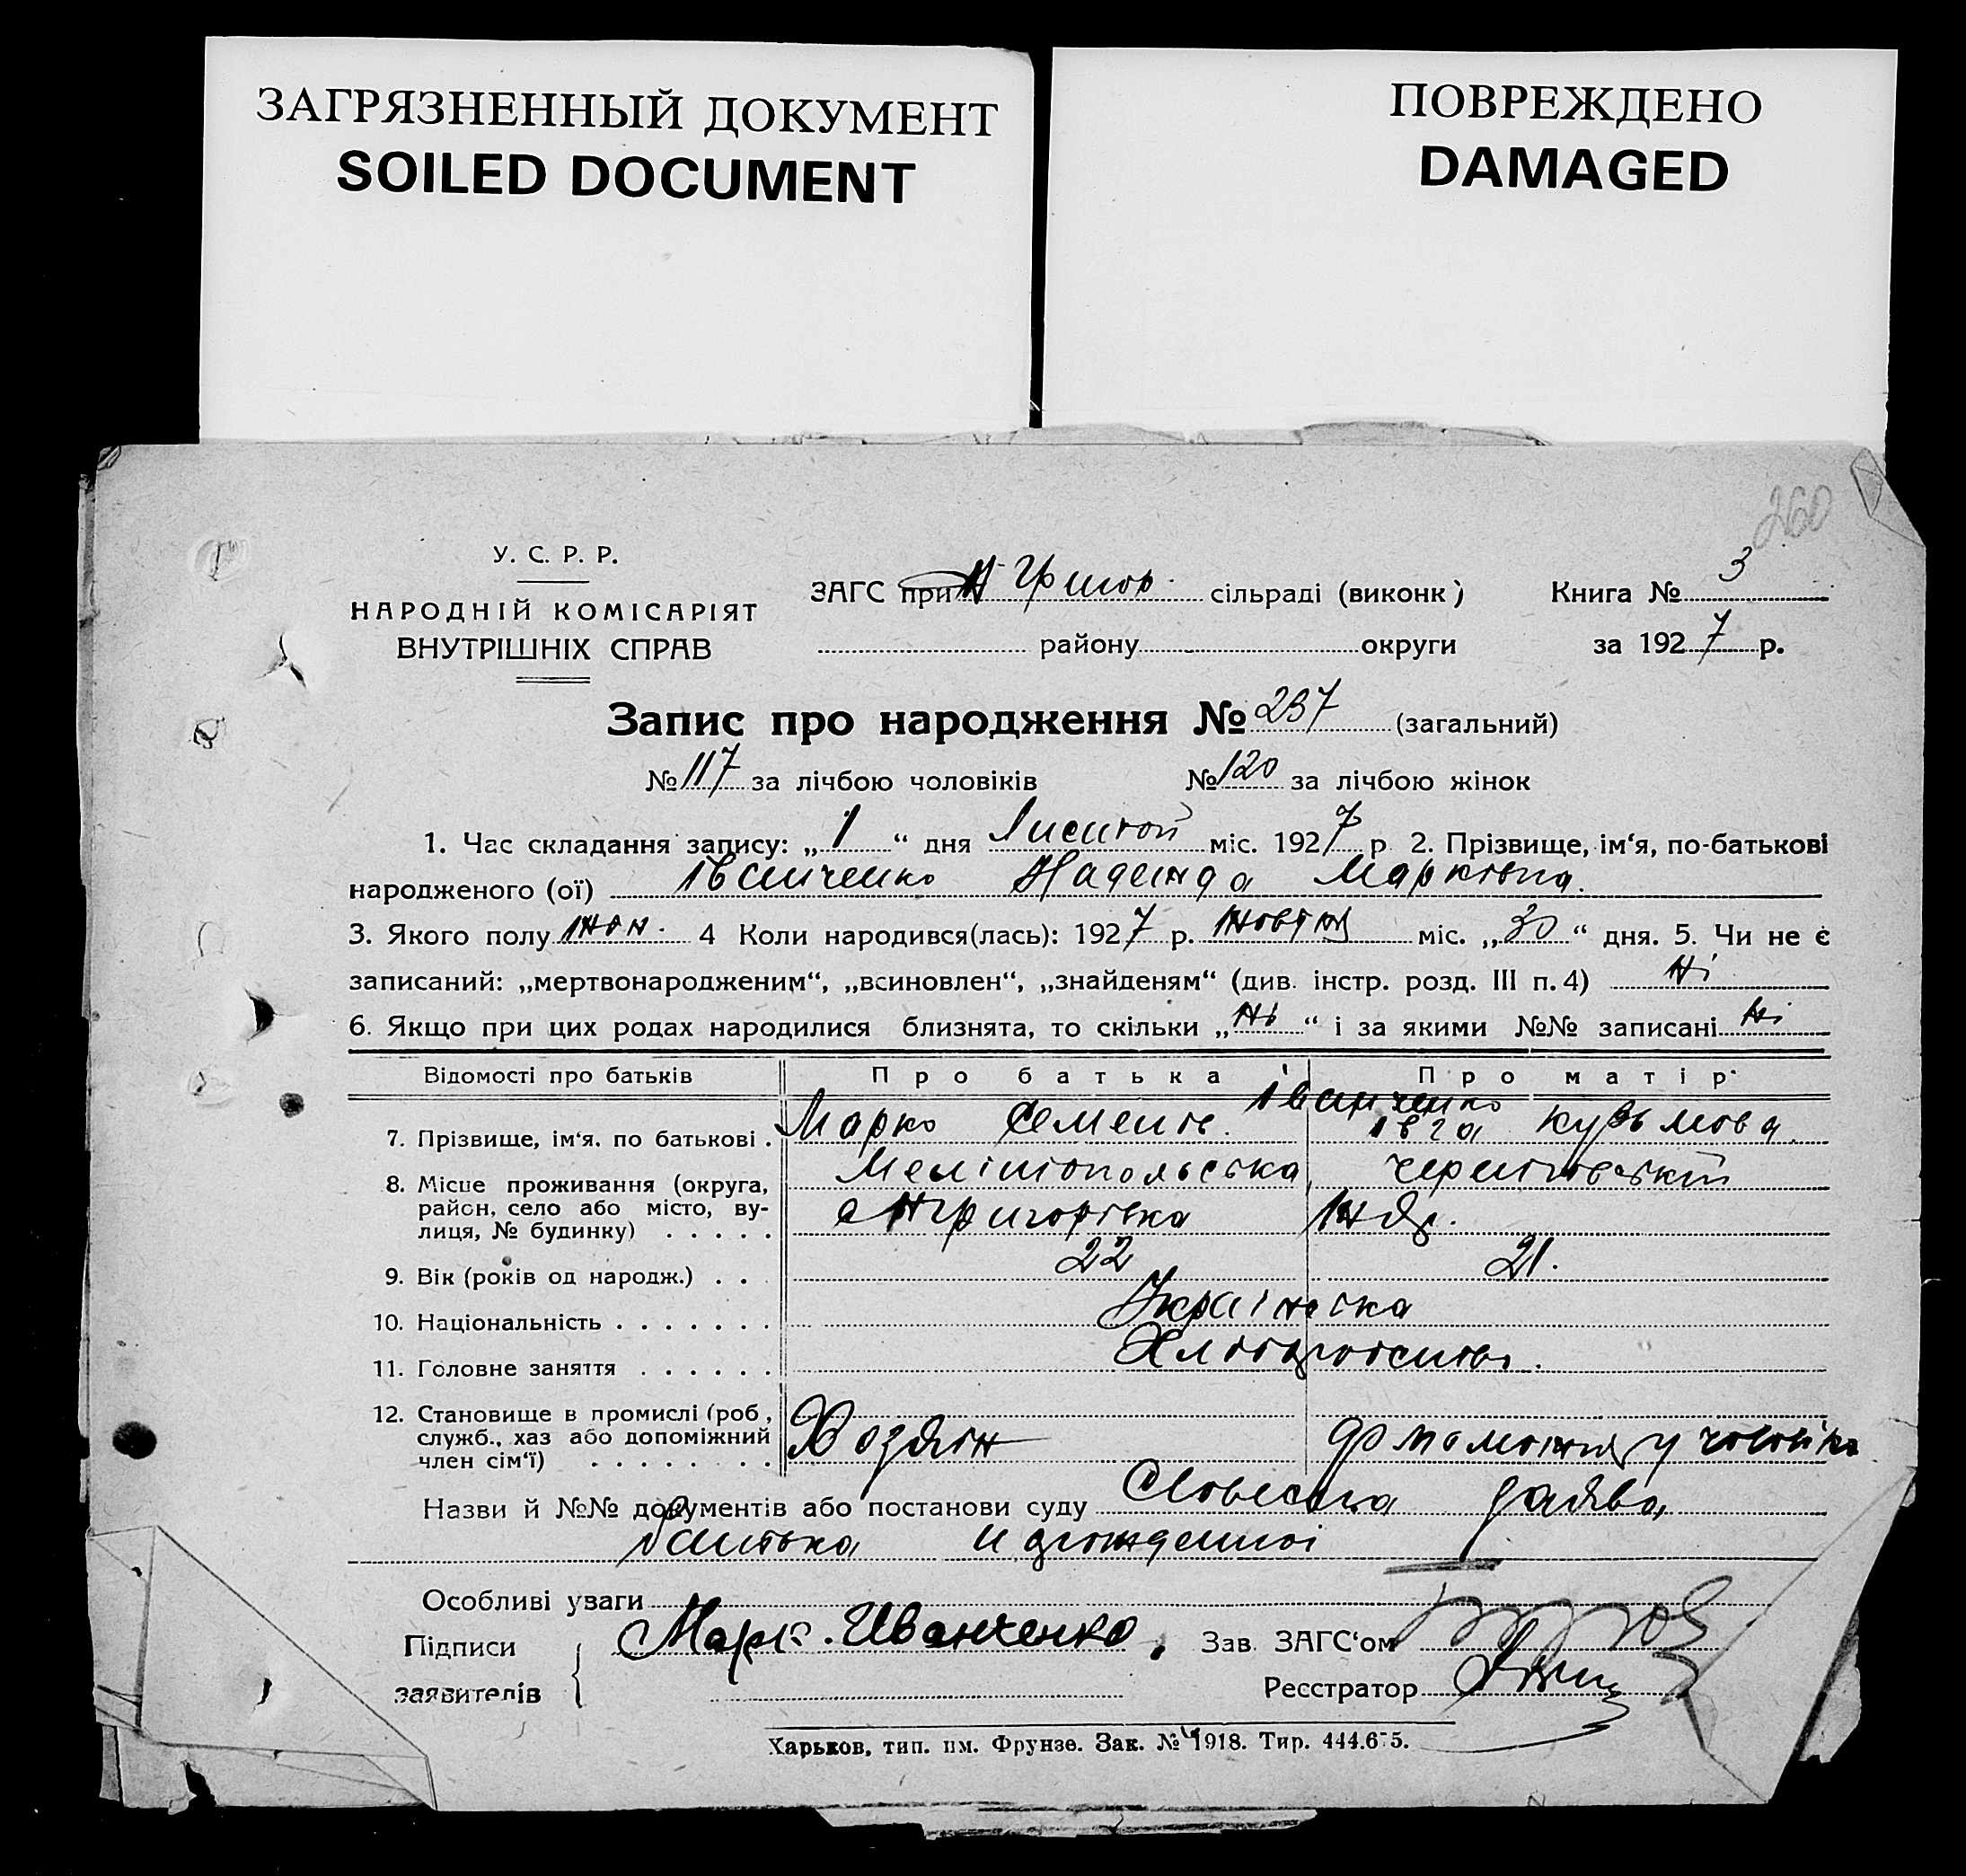 ЗАГРЯЗНЕННЫЙ ДОКУМЕНТ
SOILED DOCUMENT
ПОВРЕЖДЕНО
DAMAGED
260
У. С. Р. Р.
НАРОДНІЙ КОМІСАРІЯТ
ВНУТРІШНІХ СПРАВ
ЗАГС при Н Григор. сільраді (виконк)
району округи
Книга № 3
за 1927 р.
Запис про народження № 237 (загальний)
№ 117 за лічбою чоловіків № 120 за лічбою жінок
1. Час складання запису: „1“ дня Листоп міс. 1927 р 2. Прізвище, ім‘я, по-батькові
народженого (ої) Іванченко Надежда Марківна.
3. Якого полу жен. 4 Коли народився(лась): 1927 р. жовтня міс. „30“ дня. 5. Чи не є
записаний: „мертвонародженим“, „всиновлен“, „знайденям“ (див. інстр. розд. III п. 4) ні
6. Якщо при цих родах народилися близнята, то скільки „ні“ і за якими №№ записані ні
Відомості про батьків Про батька Про матір
Іванченко
7. Прізвище, ім‘я. по батькові . Марко Семенов. Івга Кузьмова.
8. Місце проживання (округа, район, село або місто, вулиця, № будинку) . . . . . Мелітопольська, Черниговській
с Н Григорівка
9. Вік (років од народж.) . . . 22 21.
10. Національність . . . . . . . Українська
11. Головне заняття . . . . . .
12. Становище в промислі (роб., служб., хаз або допоміжний член сім‘ї) . . . . . . . . Хозяїн
Назви й №№ документів або постанови суду Словесна заява
батька
Особливі уваги
Підписи
заявителів
Марк. Иванченко.
Зав. ЗАГС‘ом
Реєстратор
Харьков, тип. им. Фрунзе. Зак. № 1918. Тир. 444.675.